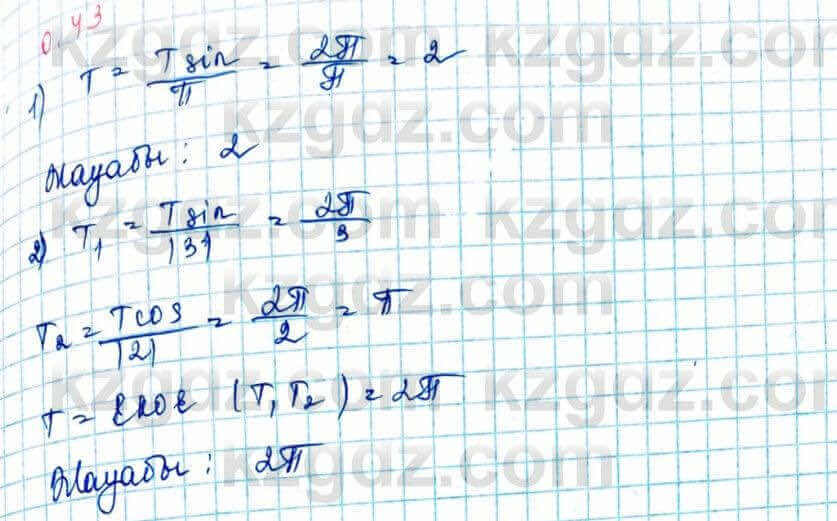 0.43
1) T = T sin / π = 2π / π = 2
Жауабы: 2
2) T₁ = T sin / |3| = 2π / 3
T₂ = T cos / |2| = 2π / 2 = π
T = ЕКОЕ (T₁ T₂) = 2π
Жауабы: 2π
kzgdz.com
kzgdz.com
kzgdz.com
kzgdz.com
kzgdz.com
kzgdz.com
kzgdz.com
kzgdz.com
kzgdz.com
kzgdz.com